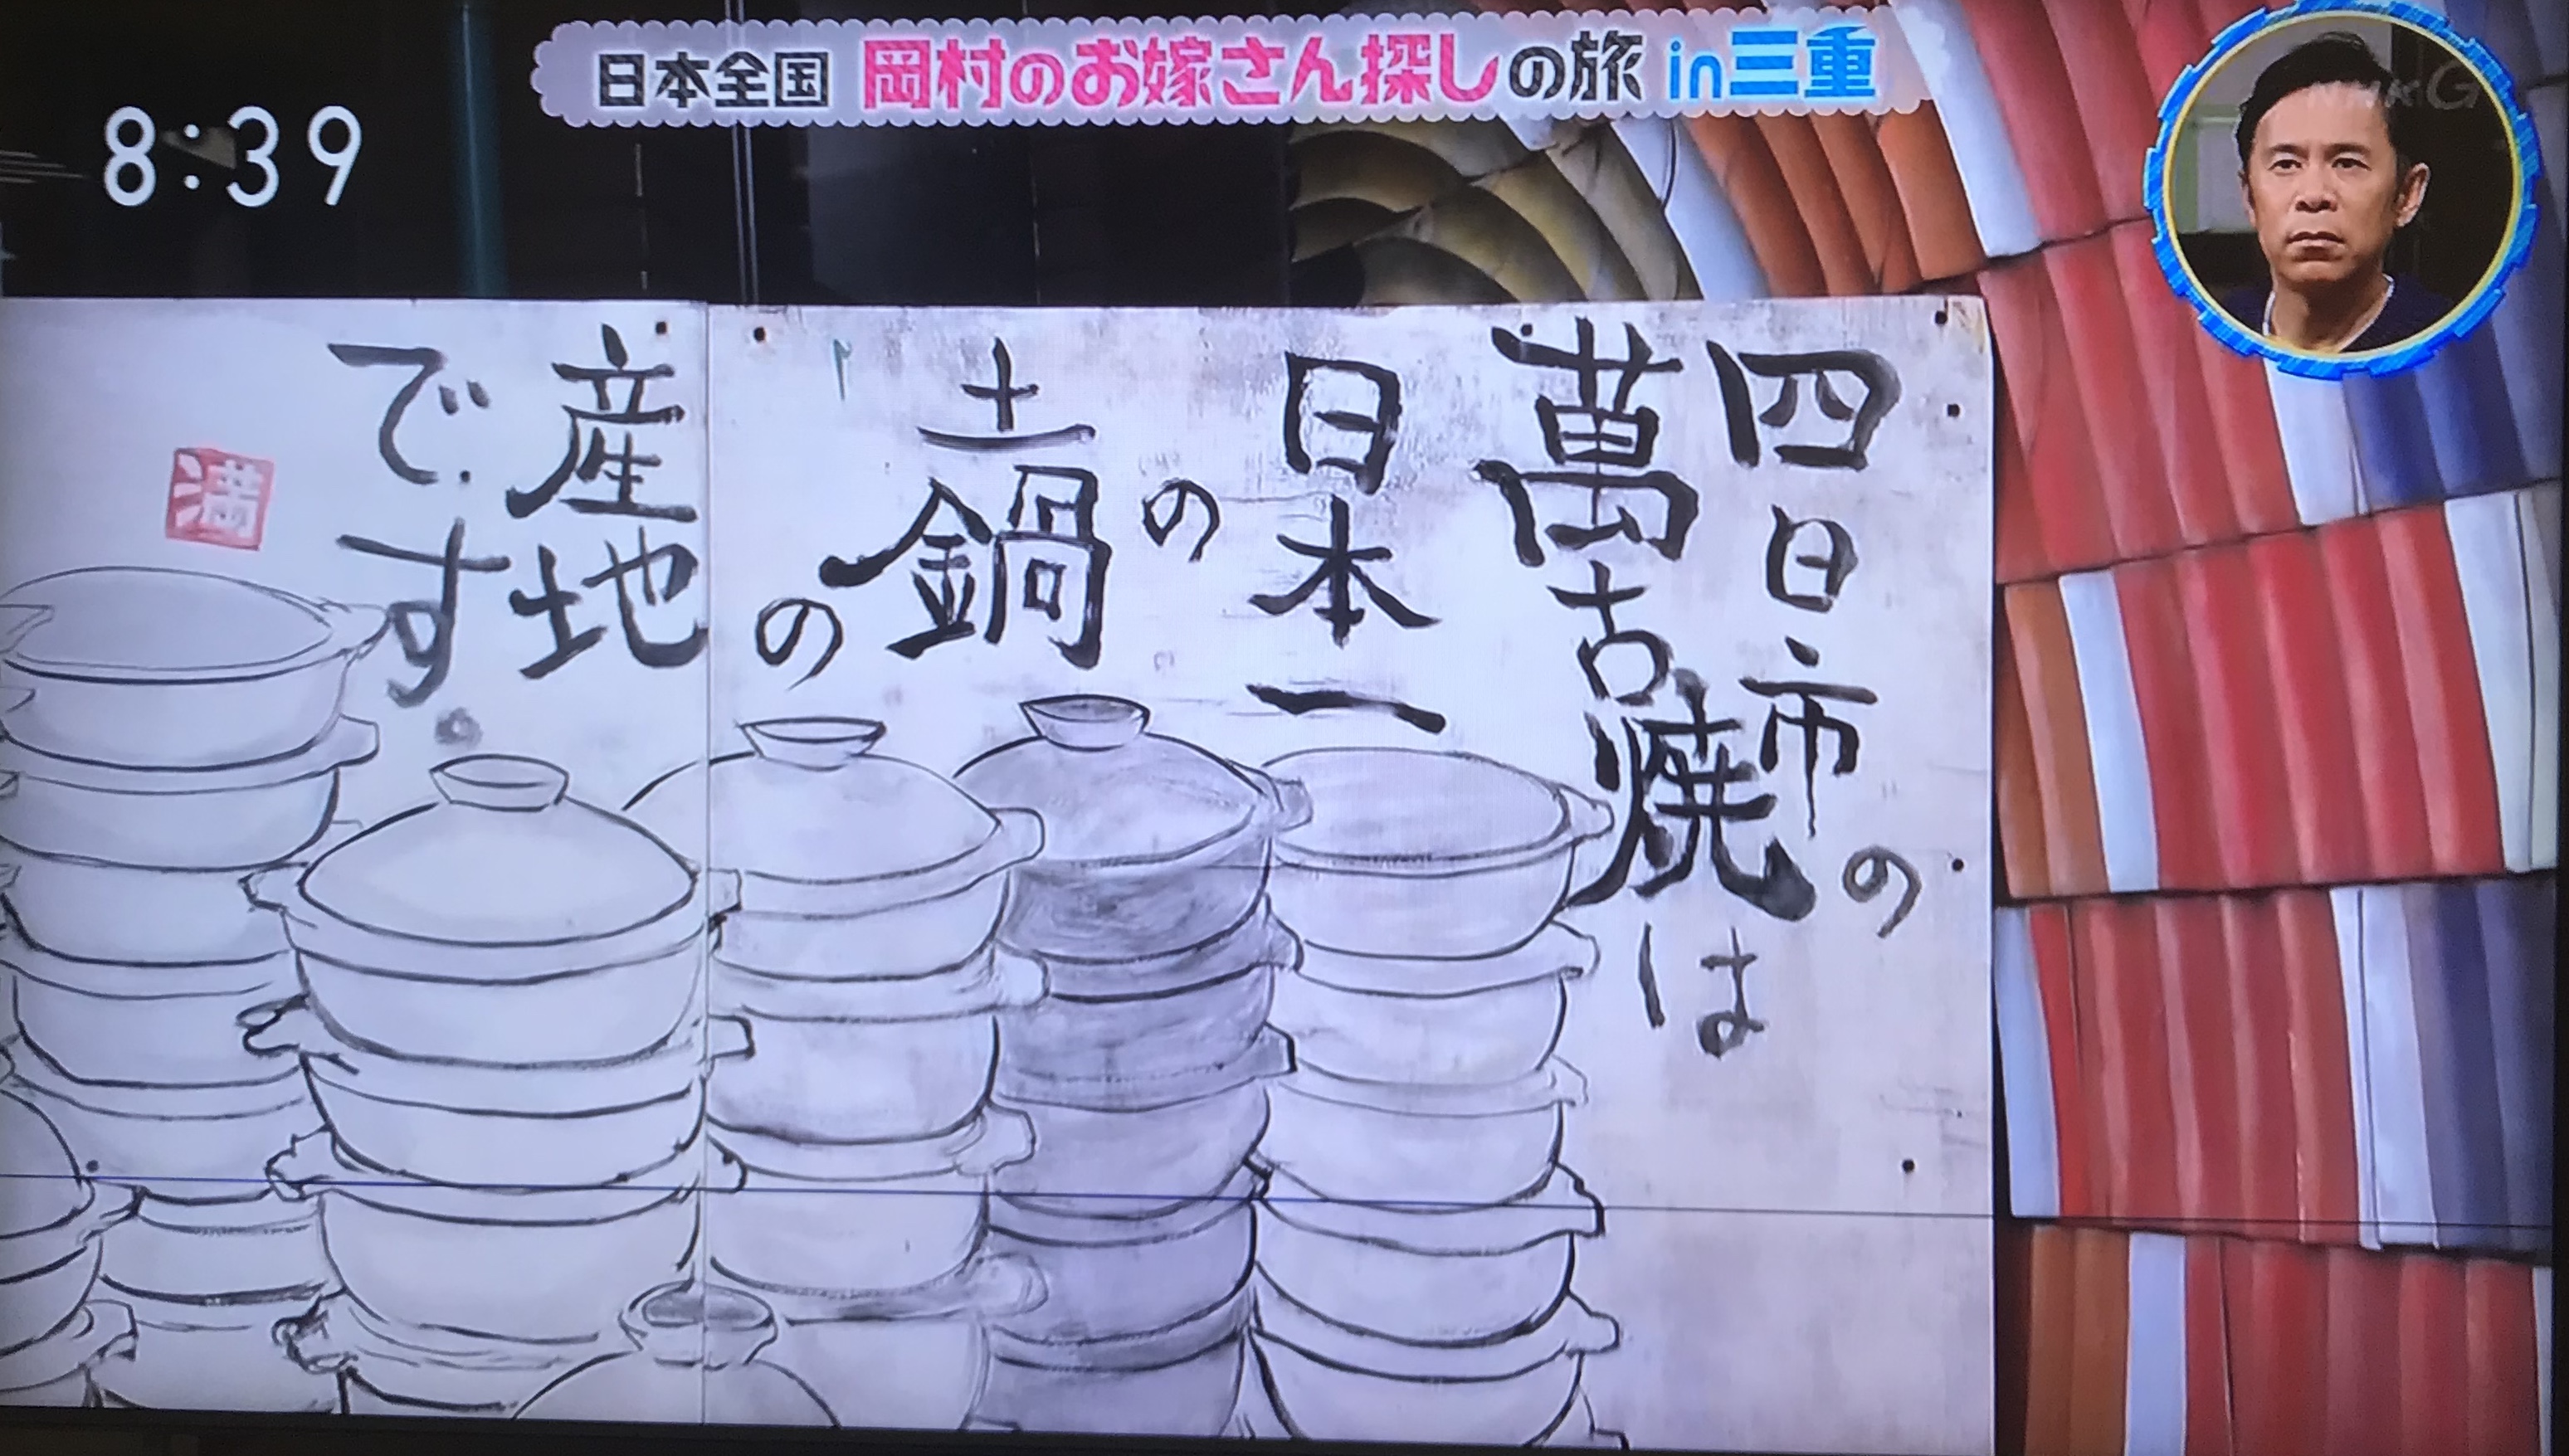 日本全国 岡村のお嫁さん探しの旅 in三重
8:39
NHK G
四日市の
萬古焼は
日本一の
土鍋の
産地
です。
満